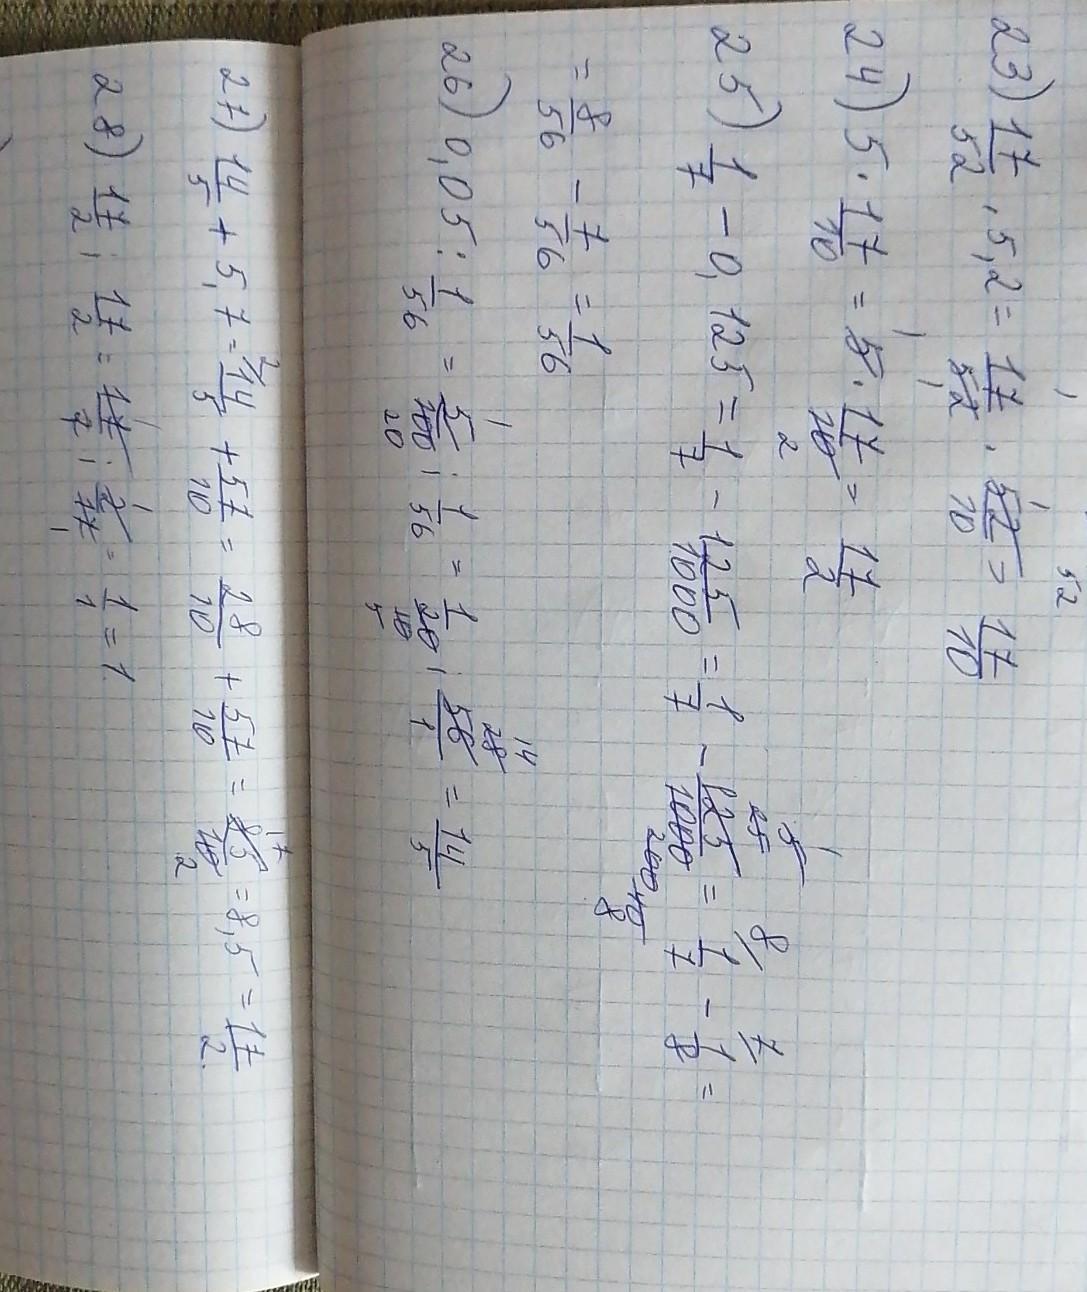 23) 17/52 · 5,2 = 17/52 · 52/10 = 17/10
52
24) 5 · 17/10 = 5 · 17/10 = 17/2
25) 1/7 - 0,125 = 1/7 - 125/1000 = 1/7 - 125/1000 = 1/7 - 1/8 =
= 8/56 - 7/56 = 1/56
26) 0,05 : 1/56 = 5/100 : 1/56 = 1/20 · 56/1 = 14/5
27) 14/5 + 5,7 = 14/5 + 57/10 = 28/10 + 57/10 = 85/10 = 8,5 = 17/2
28) 17/2 : 17/2 = 17/2 · 2/17 = 1/1 = 1